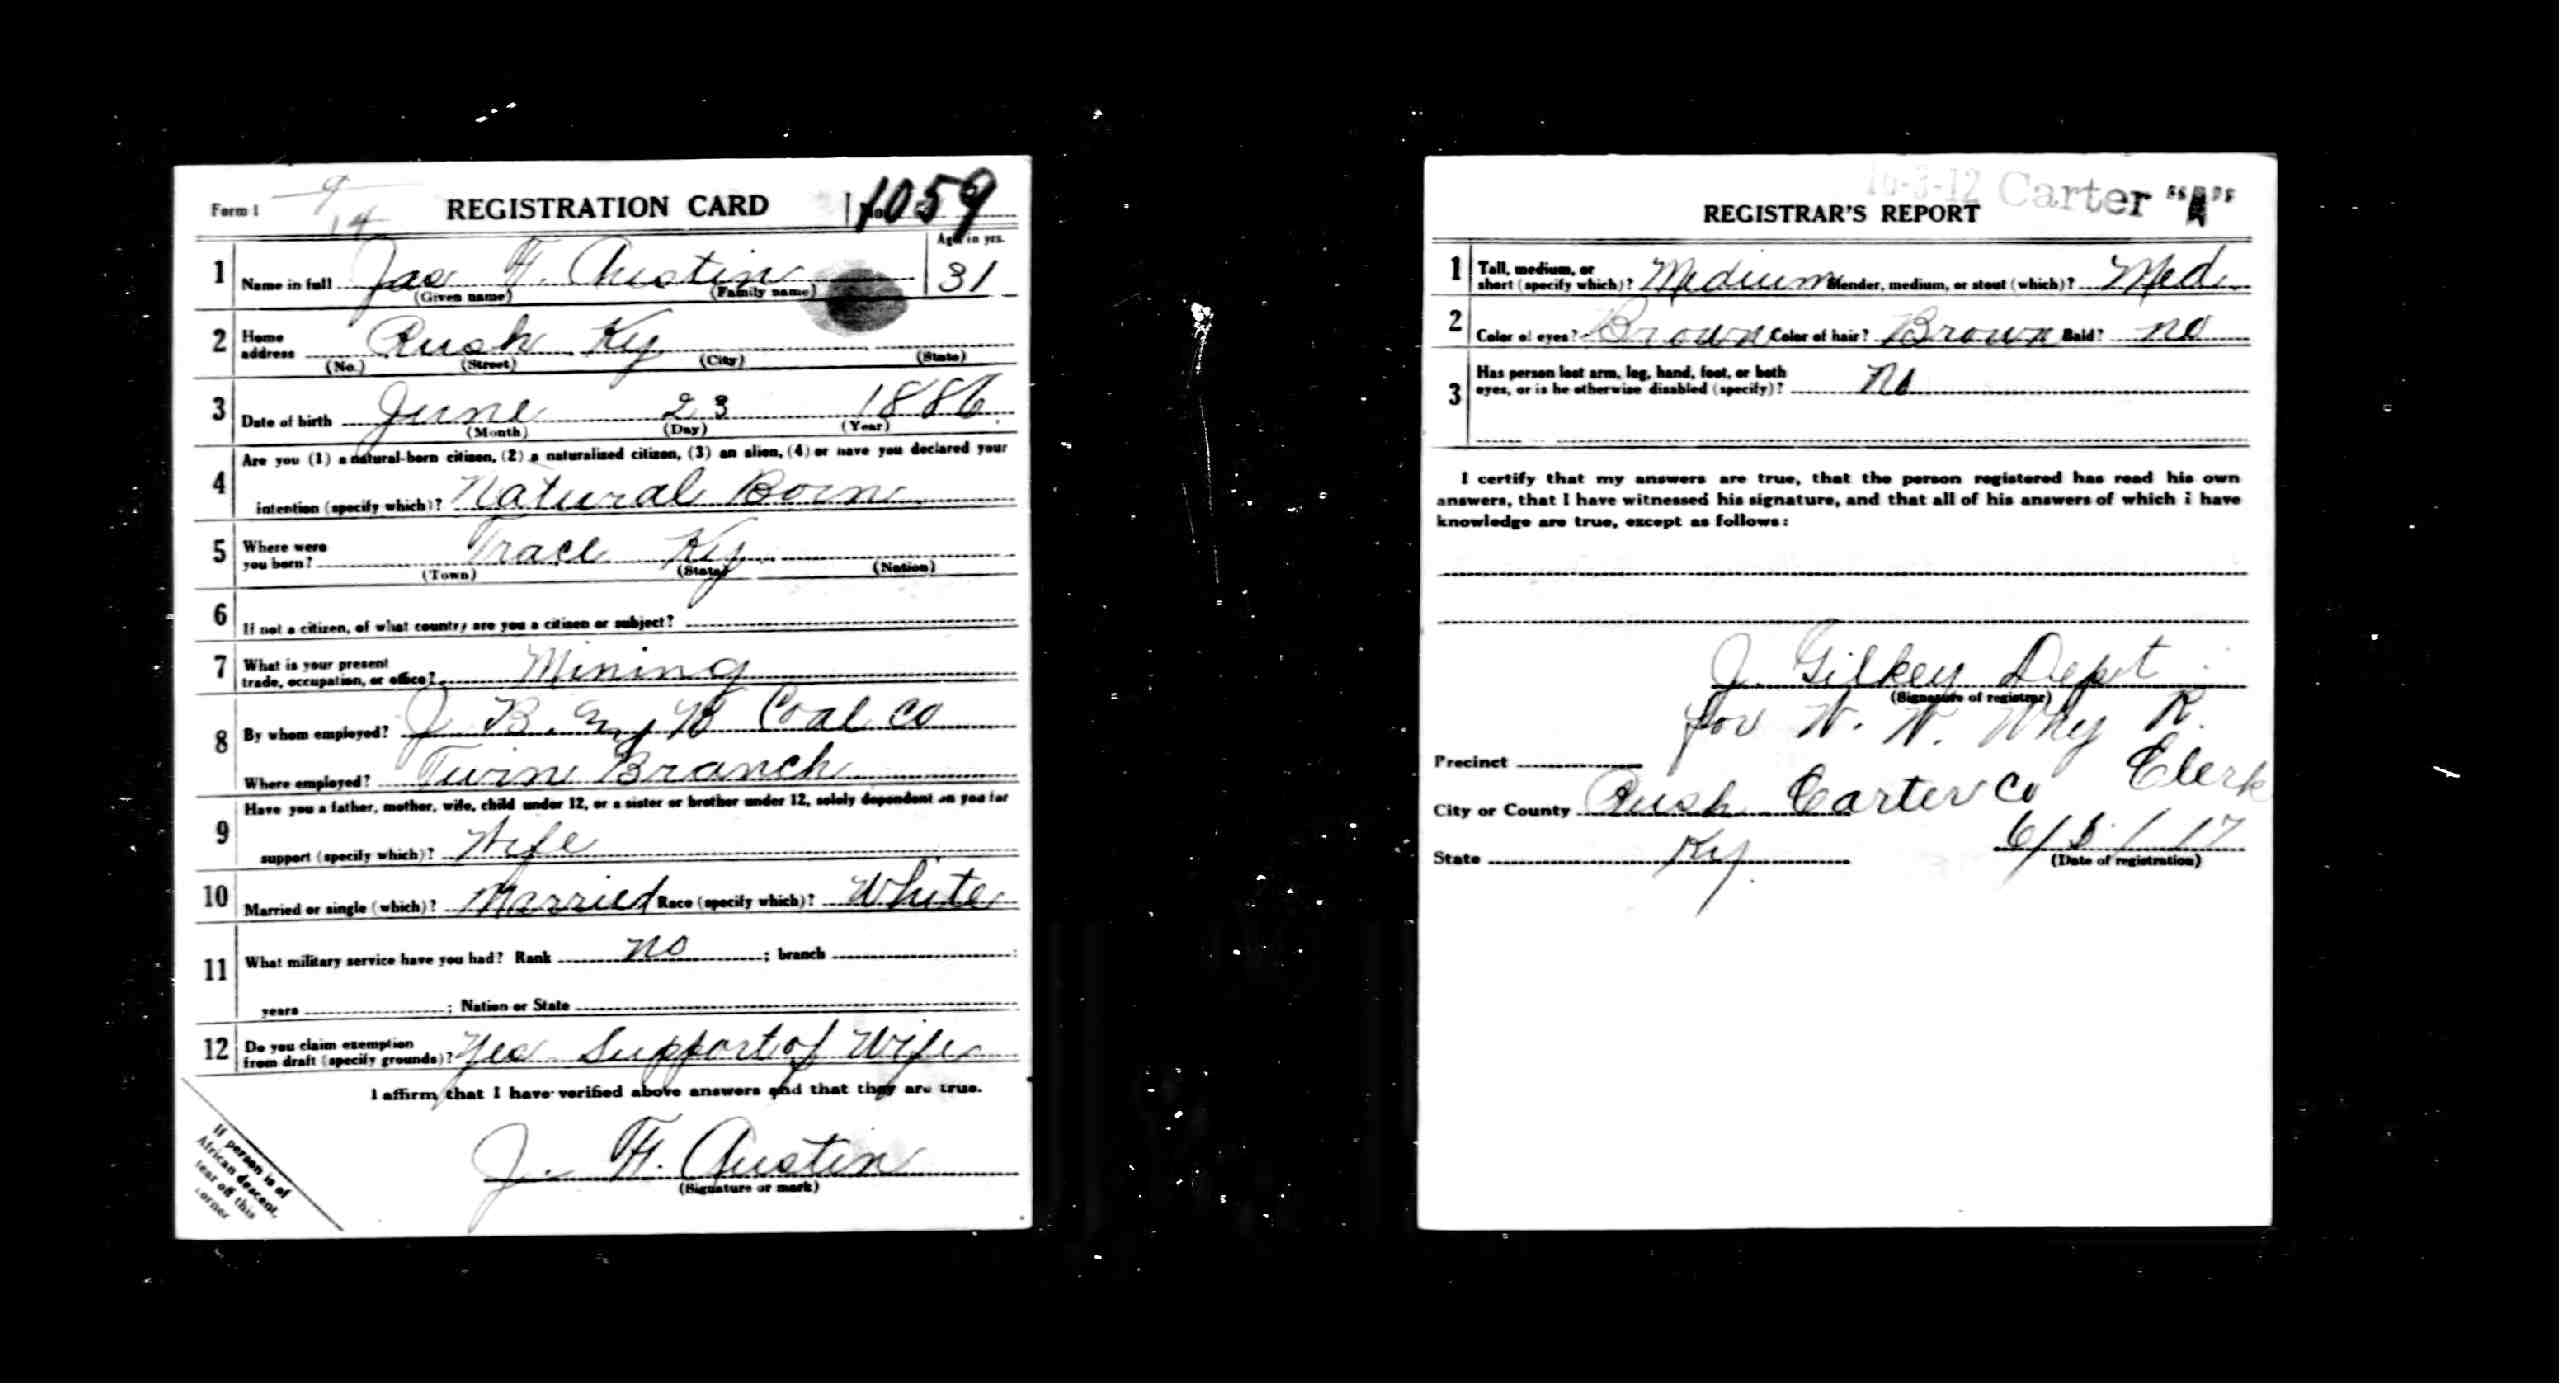 Form 1 9/14 REGISTRATION CARD No. 1059
1 Name in full Jas F. Austin Age in yrs. 31
(Given name) (Family name)
2 Home address Rush Ky
(No.) (Street) (City) (State)
3 Date of birth June 23 1886
(Month) (Day) (Year)
4 Are you (1) a natural-born citizen, (2) a naturalized citizen, (3) an alien, (4) or have you declared your
intention (specify which)? Natural Born
5 Where were you born? Trace Ky
(Town) (State) (Nation)
6 If not a citizen, of what country are you a citizen or subject?
7 What is your present trade, occupation, or office? Mining
8 By whom employed? J B. Coal Co
Where employed? Twin Branch
9 Have you a father, mother, wife, child under 12, or a sister or brother under 12, solely dependent on you for
support (specify which)? Wife
10 Married or single (which)? Married Race (specify which)? White
11 What military service have you had? Rank no ; branch
years ; Nation or State
12 Do you claim exemption from draft (specify grounds)? Yes Support of Wife
I affirm that I have verified above answers and that they are true.
J. F. Austin
(Signature or mark)
If person is of
African descent,
tear off this
corner
16-3-12 Carter "A"
REGISTRAR'S REPORT
1 Tall, medium, or short (specify which)? Medium Slender, medium, or stout (which)? Med
2 Color of eyes? Brown Color of hair? Brown Bald? no
3 Has person lost arm, leg, hand, foot, or both
eyes, or is he otherwise disabled (specify)? no
I certify that my answers are true, that the person registered has read his own
answers, that I have witnessed his signature, and that all of his answers of which I have
knowledge are true, except as follows:
J. Gilkey Dept
(Signature of registrar)
for W. W.
Precinct Clerk
City or County Rush Carter Co
State Ky. 6/5/17
(Date of registration)